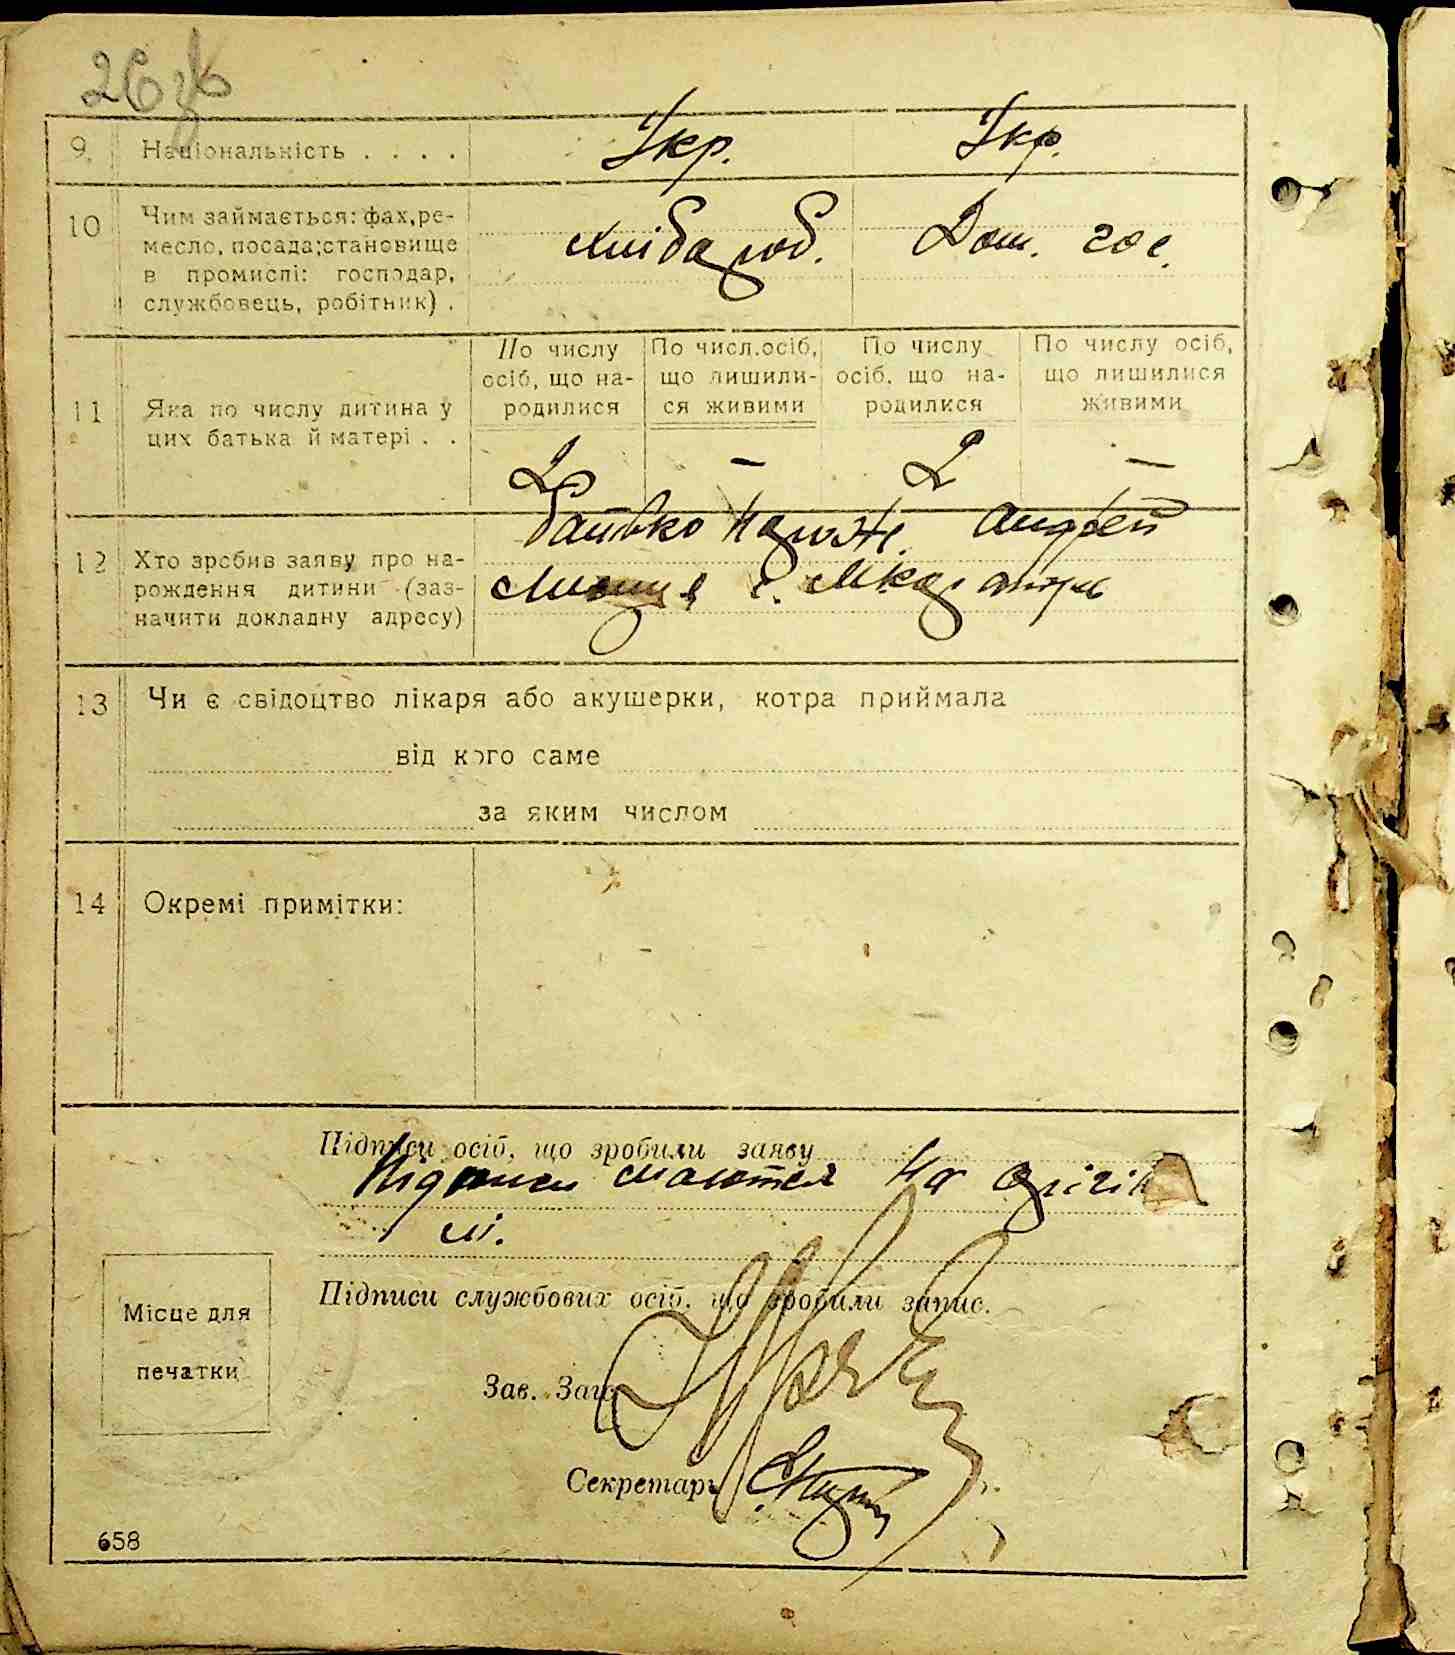 9. Національність . . . . Укр. Укр.
10 Чим займається: фах, ре-
месло, посада; становище
в промислі: господар,
службовець, робітник) .
хлібороб. Дом. гос.
По числу осіб, що на-родилися
По числ. осіб, що лишили-ся живими
По числу осіб, що на-родилися
По числу осіб, що лишилися живими
11 Яка по числу дитина у
цих батька й матері . .
2 – 2 –
12 Хто зробив заяву про на-
рождення дитини (заз-
начити докладну адресу)
батько Андрей
с.
13 Чи є свідоцтво лікаря або акушерки, котра приймала
від кого саме
за яким числом
14 Окремі примітки:
Підписи осіб, що зробили заяву
Підписи маються на оригіна
лі.
Підписи службових осіб, що зробили запис.
Місце для
печатки
Зав. Загс
Секретарь
658